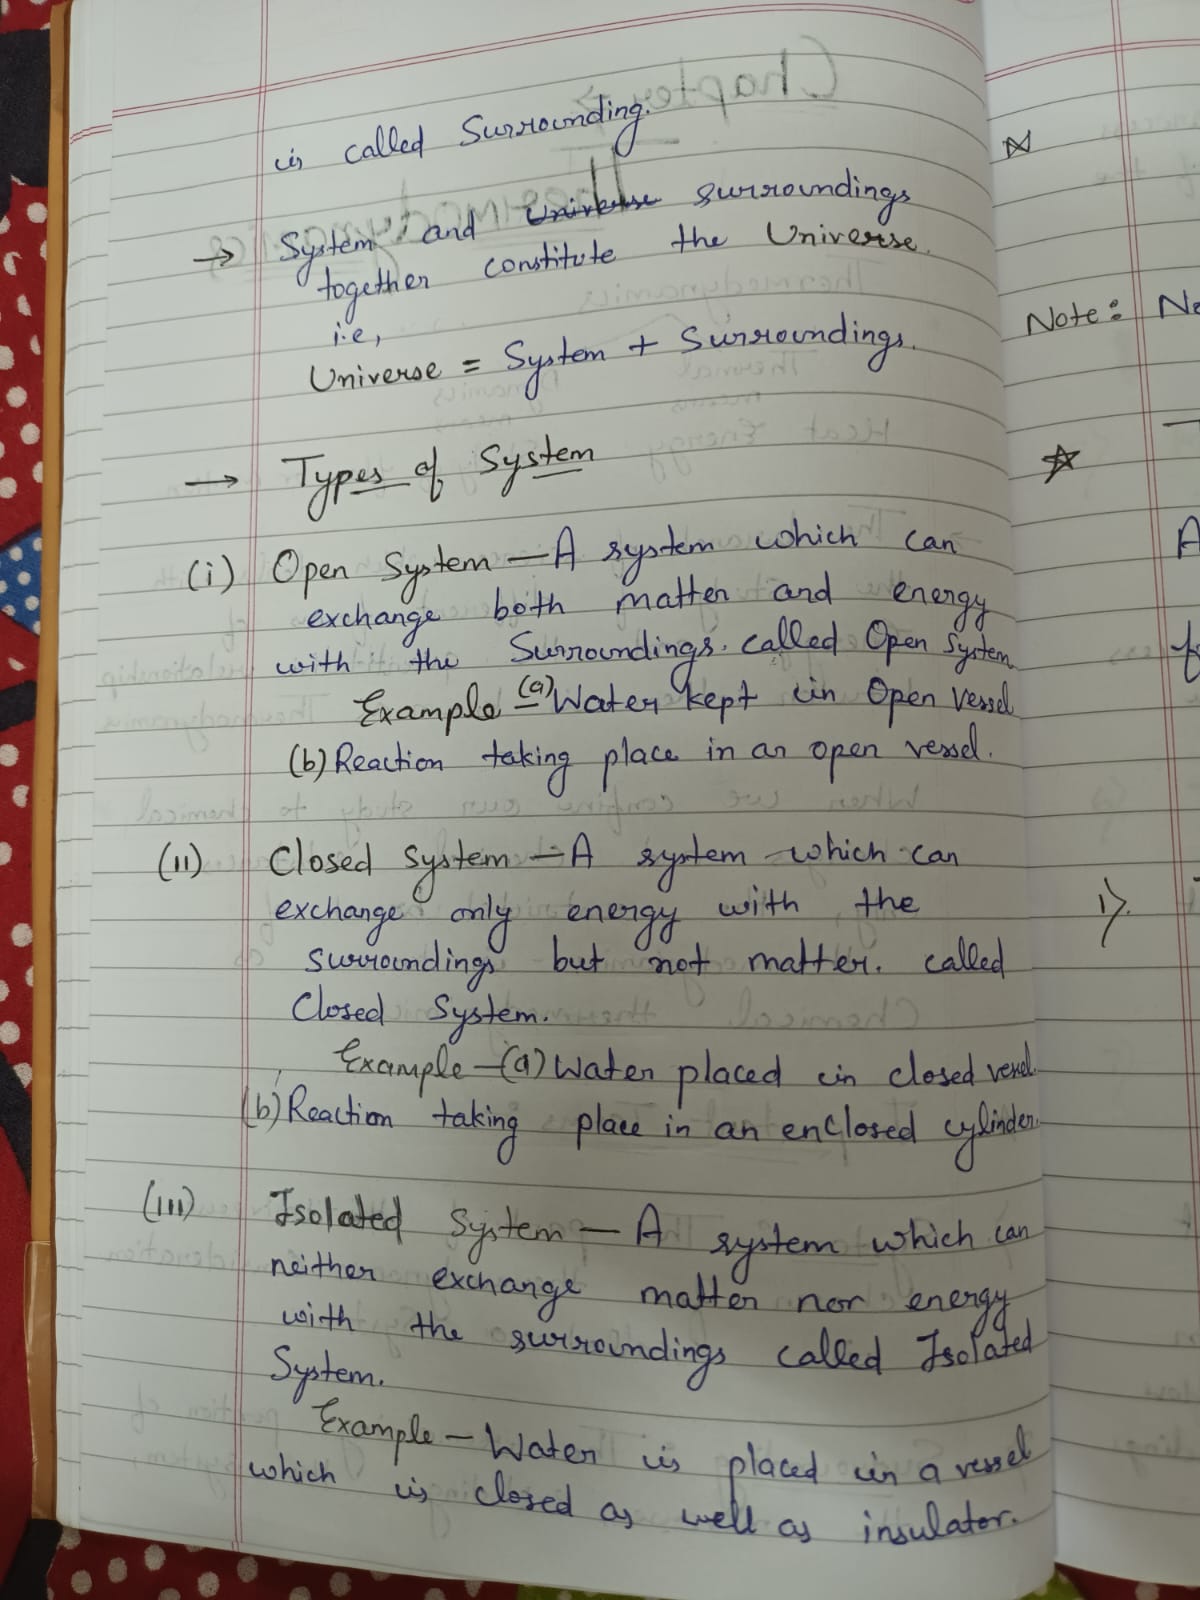 is called Surrounding.
→ System and Universe surroundings
together constitute the Universe.
i.e,
Universe = System + Surroundings.
→ Types of System
(i) Open System — A system which can
exchange both matter and energy
with the Surroundings. called Open System
Example – (a) Water kept in Open vessel
(b) Reaction taking place in an open vessel.
(ii) Closed System — A system which can
exchange only energy with the
surroundings but not matter. called
Closed System.
Example – (a) Water placed in closed vessel.
(b) Reaction taking place in an enclosed cylinder.
(iii) Isolated System — A system which can
neither exchange matter nor energy
with the surroundings called Isolated
System.
Example – Water is placed in a vessel
which is closed as well as insulator.
Note:
1).